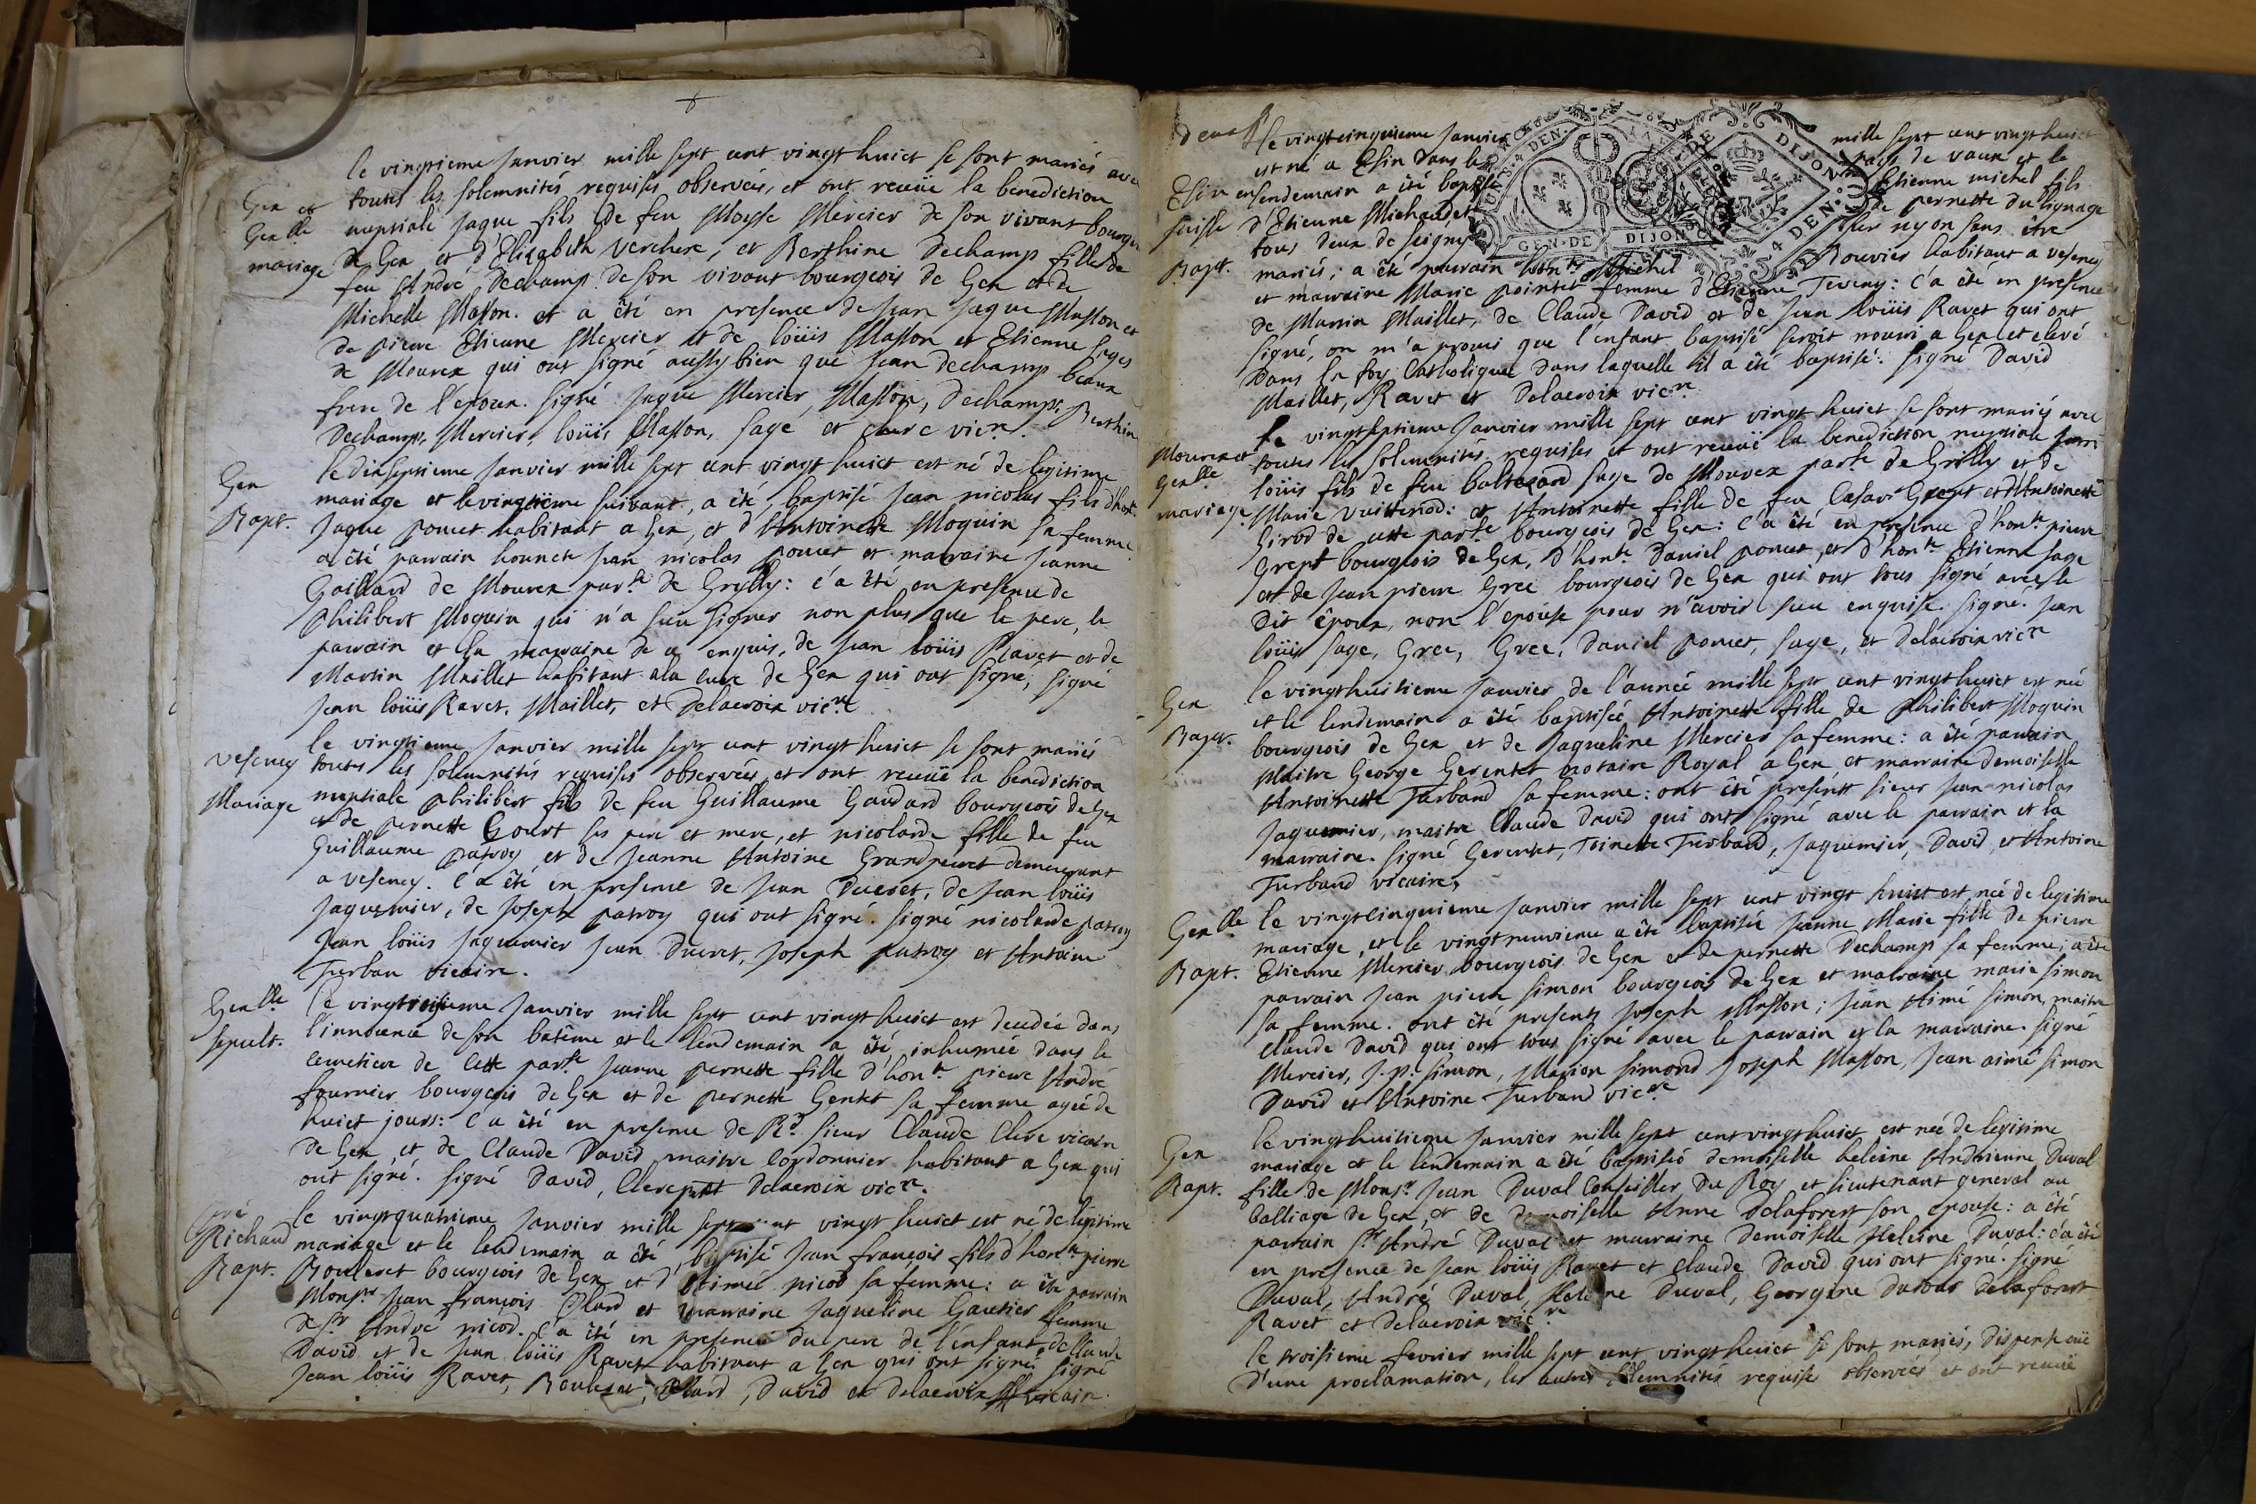 le vingtieme Janvier mille sept cent vingt huict se sont mariés avec
Gex et toutes les solemnités requises observées, et ont receüe la benediction
Gexlle nuptiale Jaque fils de feu Moyse Mercier de son vivant bourgeois
mariage de Gex et d'Elizabeth Verchere, et Berthine Dechamp fille de
feu André Dechamp de son vivant bourgeois de Gex et de
Michelle Masson. et a êté en presence de Jean Jaque Masson et
de pierre Etienne Mercier et de loüis Masson et Etienne Sages
de Mourex qui ont signé aussy bien que Jean dechamp beaux
frere de l'epoux. signé Jaque Mercier, Masson, Dechamps, Berthine
Dechamps, Mercier, loüis Masson, sage et clerc vicre.
Gex le dixseptieme Janvier mille sept cent vingt huict est né de legitime
mariage et le vingtieme suivant, a êté baptisé Jean nicolas fils d'hon.
Bapt. Jaque poncet habitant a Gex, et d'Antoinette Moquin sa femme
a êté parrain Jean nicolas poncet et marraine Jeanne
Gaillard de Mourex parse de Grilly: c'a êté en presence de
Philibert Moquin qui n'a sceu signer non plus que le pere, le
parrain et la marraine de ce enquis, de Jean loüis Ravet et de
Martin Maillet habitant a la cure de Gex qui ont signé, signé
Jean loüis Ravet, Maillet, et Delacroix vicre
le vingtieme Janvier mille sept cent vingt huict se sont mariés
Vesency toutes les solemnités requises observées et ont receüe la benediction
Mariage nuptiale philibert fils de feu Guillaume Gaudard bourgeois de Gex
et de pernette Gourt ses pere et mere, et nicolarde fille de feu
Guillaume patroy et de Jeanne Antoine Grandperret demeurant
a vesency. C'a êté en presence de Jean Ducret, de Jean loüis
Jaquemier, de Joseph patroy qui ont signé. signé nicolarde patroy
Jean loüis Jaquemier Jean Ducret, Joseph patroy et Antoine
Turban vicaire.
Gexlle le vingttroisieme Janvier mille sept cent vingt huict est decedée dans
sepult. l'innocence de son batême et le lendemain a êté inhumée dans le
cemetiere de cette parse Jeanne pernette fille d'honte pierre André
fournier bourgeois de Gex et de pernette Gentet sa femme agée de
huict jours: C'a êté en presence de Rd sieur Claude Clerc vicaire
de Gex, et de Claude David maitre cordonnier habitant a Gex qui
ont signé. signé David, Clerc et Delacroix vicre.
pré le vingtquatrieme Janvier mille sept cent vingt huict est né de legitime
Richaud mariage et le lendemain a êté baptisé Jean françois fils d'honte pierre
Bapt. Bouleret bourgeois de Gex et d'Etiennee nicod sa femme: a êté parrain
Monsr Jean françois et marraine Jaqueline Gautier femme
de sr André nicod. C'a êté en presence du pere de l'enfant de Claude
David et de Jean loüis Ravet habitant a Gex qui ont signé. signé
Jean loüis Ravet, Bouleret, David et delacroix vicaire.
deux le vingtcinquieme Janvier mille sept cent vingt huict
est né a Elsin dans le pays de vaux et le
Elsin en lendemain a êté baptisé Etienne michel fils
suisse d'Etienne Michaudet de pernette du lignage
tous deux de seigny sur nyon sans être
Bapt. mariés; a êté parrain honte Michel Rouvier habitant a vesency
et marraine Marie pointet femme d'Etienne Teveny: C'a êté en presence
de Martin Maillet, de Claude David et de Jean loüis Ravet qui ont
signé, on m'a promi que l'enfant baptisé seroit nourri a Gex et elevé
dans la foy Catholique dans laquelle il a êté baptisé: signé David
Maillet, Ravet et Delacroix vicre.
le vingtseptieme Janvier mille sept cent vingt huict se sont mariés avec
Mourex et toutes les solemnités requises et ont receüe la benediction nuptiale Jean
Gexlle loüis fils de feu baltazard sage de Mourex parse de Grilly et de
mariage Marie Vuittenod: et Antoinette fille de feu Cesar Grept et d'Antoinette
Girod de cette parse bourgeois de Gex: C'a êté en presence d'honte pierre
Grept bourgeois de Gex, d'honte Daniel poncet, et d'honte Etienne sage
et de Jean pierre Grec bourgeois de Gex qui ont tous signé avec le
dit époux, non l'epouse pour n'avoir sceu enquise. signé. Jean
loüis sage, Grec, Grec, Daniel poncet, sage, et delacroix vicre
Gex le vingthuitieme Janvier de l'année mille sept cent vingthuict est née
et le lendemain a êté baptisée Antoinette fille de Philibert Moquin
Bapt. bourgeois de Gex et de Jaqueline Mercier sa femme: a êté parrain
Maitre George Gerentet notaire Royal a Gex et marraine demoiselle
Antoinette Turband sa femme: ont êté present sieur Jean nicolas
Jaquemier, maitre Claude David qui ont signé avec le parrain et la
marraine. signé Gerentet, Toinette Turband, Jaquemier, David et Antoine
Turband vicaire.
Gexlle le vingtcinquieme Janvier mille sept cent vingt huict est née de legitime
mariage, et le vingtneuvieme a êté baptisée Jeanne Marie fille de pierre
Bapt. Etienne Mercier bourgeois de Gex et de pernette Dechamp sa femme; a êté
parrain Jean pierre simon bourgeois de Gex et marraine marie simon
sa femme. ont êté presents Joseph Masson; Jean Aimé simon, maitre
Claude David qui ont tous signé avec le parrain et la marraine. signé
Mercier, J.p. simon, Marion simond Joseph Masson, Jean aimé simon
David et Antoine Turband vicre
Gex le vingthuitieme Janvier mille sept cent vingthuict est née de legitime
mariage et le lendemain a êté baptisée demoiselle heleine Andrienne Duval
Bapt. fille de Monsr Jean Duval Conseiller du Roy et lieutenant general au
Balliage de Gex, et de Demoiselle Anne Delaforest son epouse: a êté
parrain sr André Duval et marraine Demoiselle Heleine Duval: c'a êté
en presence de Jean loüis Ravet et Claude David qui ont signé. signé
Duval, André Duval, Heleine Duval, Georgine Delaforest
Ravet et delacroix vicre
le troisieme fevrier mille sept cent vingthuict se sont mariés, dispense eüe
d'une proclamation, les autres solemnités requises observées et ont receüe
GEN·DE DIJON
4 DEN.